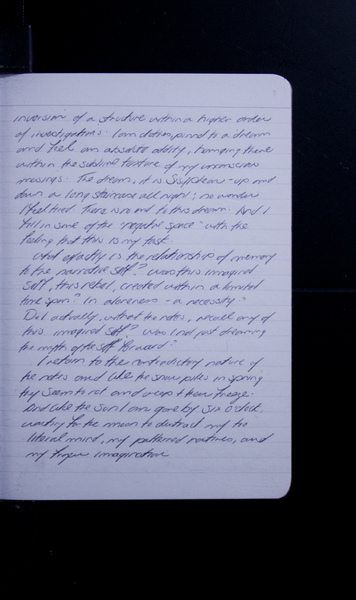 inversion of a structure within a higher order
of investigations. I am determined to a dream
and feel an absolute oddity, hanging there
within the sublime texture of my unconscious
musings. The dream, it is Sisyphean - up and
down a long staircase all night; no wonder
I feel tired. There is no end to this dream. And I
fill in some of the "negative space" with the
feeling that this is my task.
What exactly is the relationship of memory
to the narrative self? Was this imagined
self, this rebel, created within a limited
time span? In aloneness - a necessity?
Do I actually, without the notes, recall any of
this imagined self? Was I not just dreaming
the myth of the self forward?
I return to the contradictory nature of
the notes and like the snow piles in spring
they seem to rot and weep & then freeze.
And like the sun I am gone by six o'clock
waiting for the moon to distract my too
literal mind, my patterned routines, and
my imagination